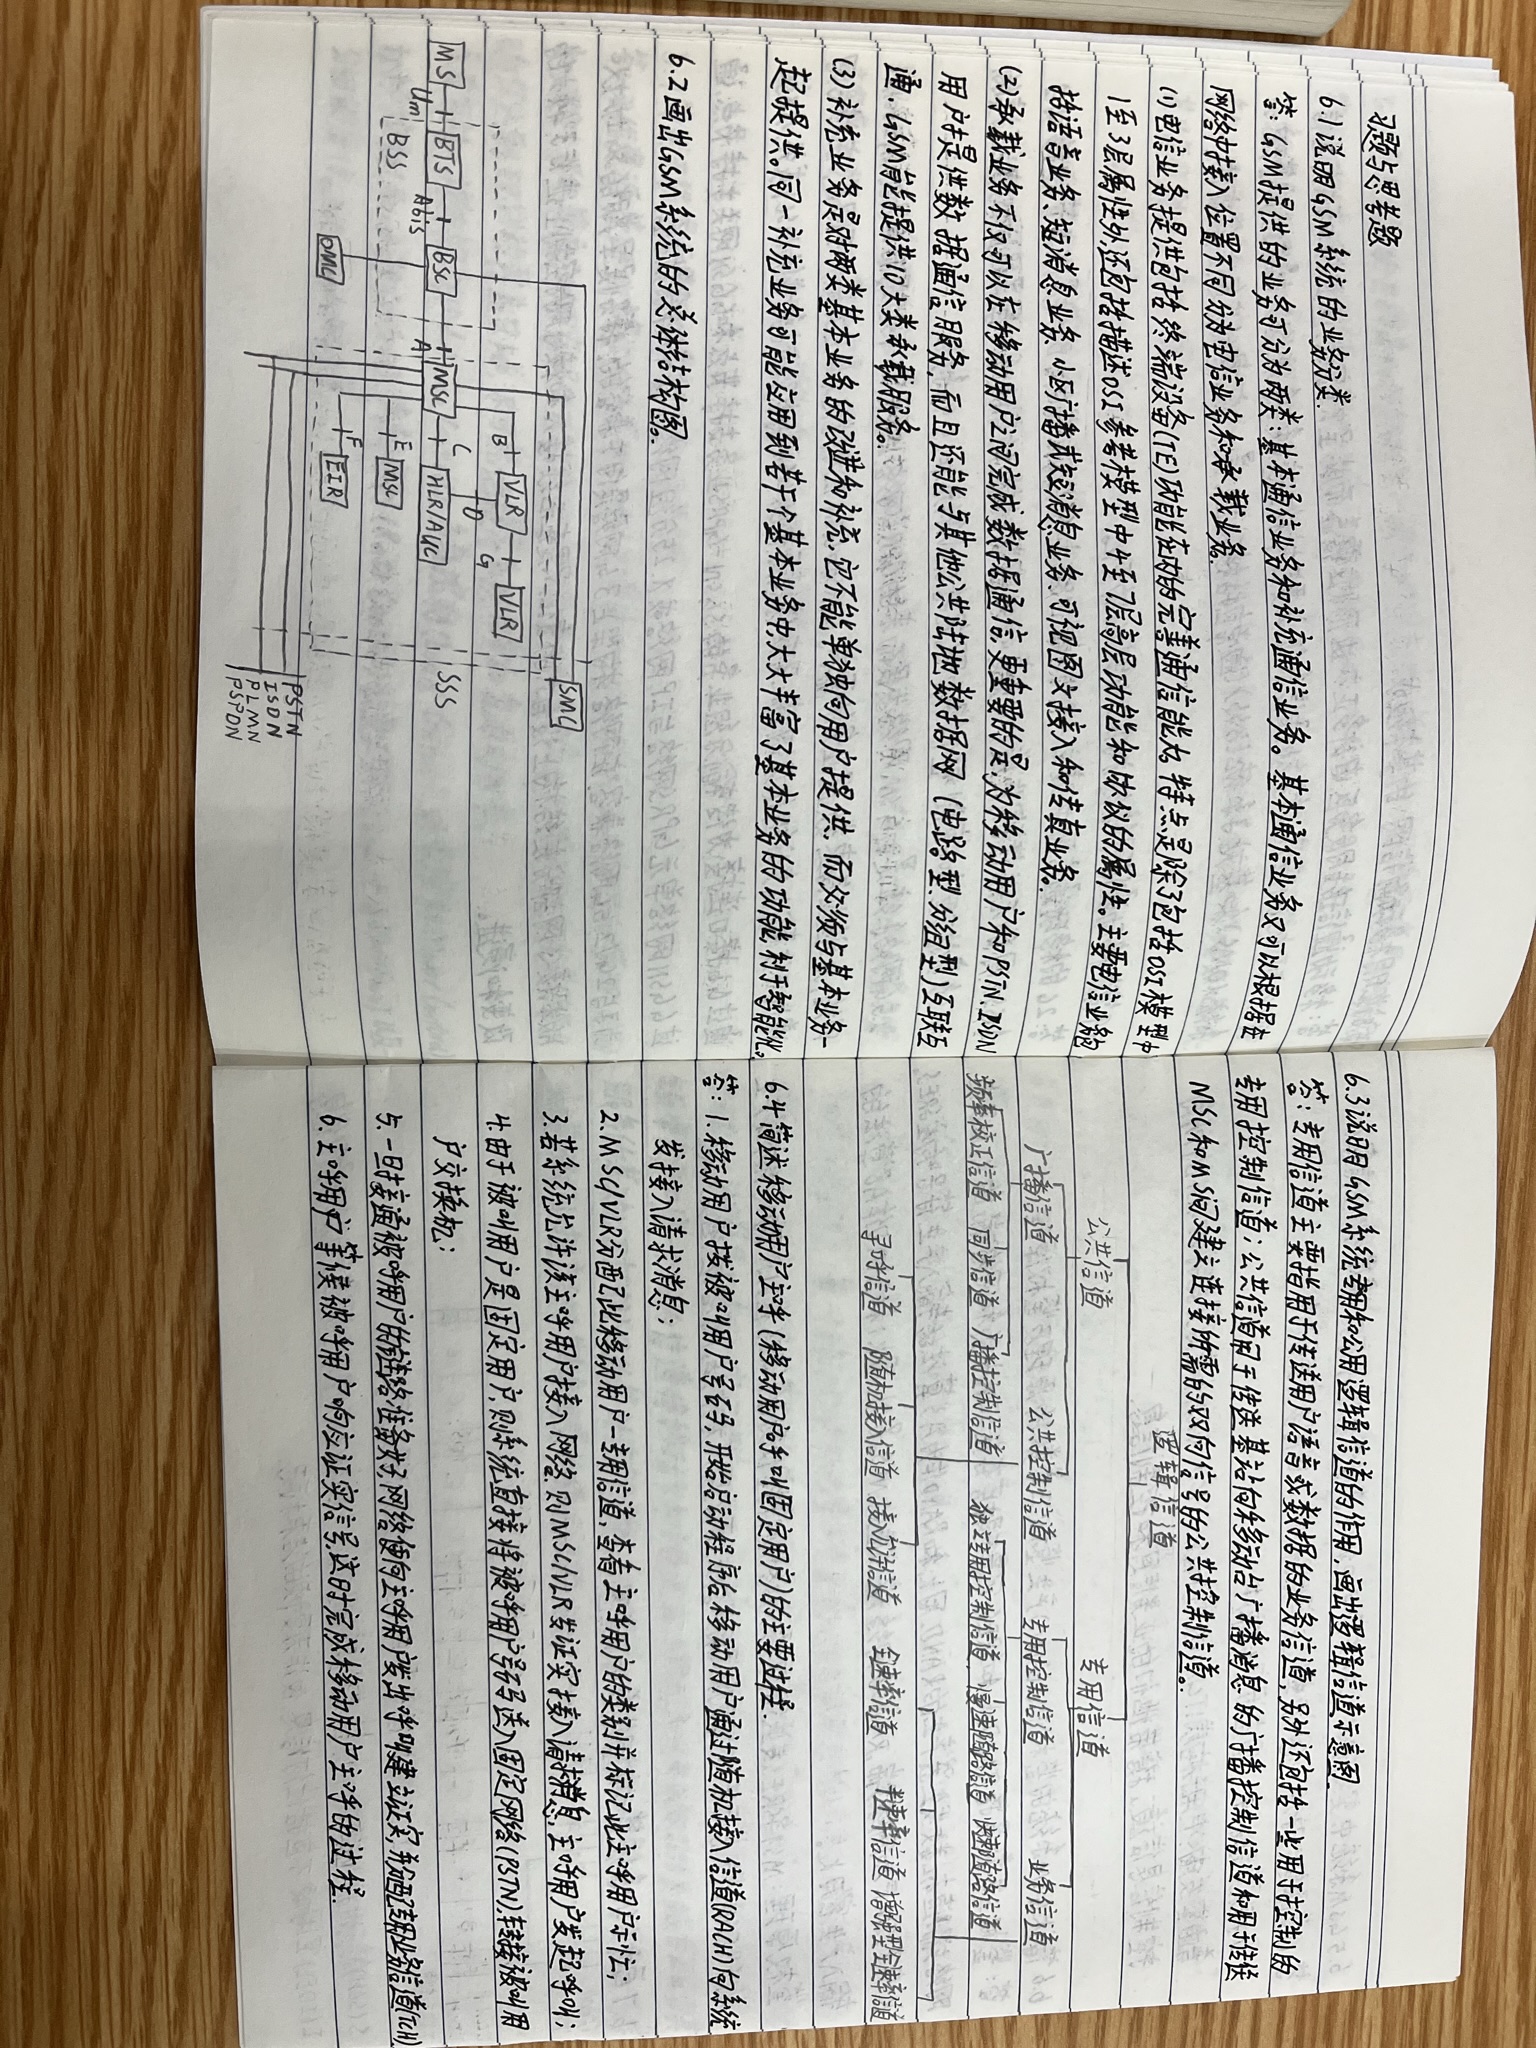 习题与思考题
6.1 说明GSM系统的业务分类.
答: GSM提供的业务可分为两类: 基本通信业务和补充通信业务。基本通信业务又可以根据在
网络中接入位置不同分为电信业务和承载业务.
(1) 电信业务提供包括终端设备(TE)功能在内的完善通信能力。特点是除了包括OSI模型中
1至3层属性外,还包括描述OSI参考模型中4至7层高层功能和协议的属性。主要电信业务包
括语音业务、短消息业务、小区广播式短消息业务、可视图文接入和传真业务。
(2) 承载业务不仅可以在移动用户之间完成数据通信,更重要的是,为移动用户和PSTN、ISDN
用户提供数据通信服务, 而且还能与其他公共陆地数据网 (电路型、分组型) 互联互
通. GSM能提供10大类承载服务。
(3) 补充业务是对两类基本业务的改进和补充, 它不能单独向用户提供, 而必须与基本业务一
起提供。同一补充业务可能应用到若干个基本业务中,大大丰富了基本业务的功能, 利于智能化。
6.2 画出GSM系统的总体结构图。
SMC
B VLR G VLR
D
MS Um BTS Abis BSC A MSC C HLR/AUC SSS
BSS E MSC
OMC F EIR
PSTN
ISDN
PLMN
PSPDN
6.3 说明GSM系统专用和公用逻辑信道的作用, 画出逻辑信道示意图.
答: 专用信道主要指用于传送用户语言或数据的业务信道, 另外还包括一些用于控制的
专用控制信道; 公共信道用于传送基站向移动台广播消息的广播控制信道和用于传送
MSC和MS间建立连接所需的双向信号的公共控制信道。
逻辑信道
公共信道 专用信道
广播信道 公共控制信道 专用控制信道 业务信道
频率校正信道 同步信道 广播控制信道 独立专用控制信道 慢速随路信道 快速随路信道
寻呼信道 随机接入信道 接入允许信道 全速率信道 半速率信道 增强型全速率信道
6.4 简述移动用户主呼 (移动用户呼叫固定用户) 的主要过程.
答: 1. 移动用户拨被叫用户号码, 开始启动程序后移动用户通过随机接入信道(RACH)向系统
发接入请求消息;
2. MSC/VLR分配此移动用户一专用信道, 查看主呼用户的类别并标记此主呼用户示忙;
3. 若系统允许该主呼用户接入网络, 则MSC/VLR发证实接入请求消息, 主呼用户发起呼叫;
4. 由于被叫用户是固定用户, 则系统直接将被呼用户号码送入固定网络(PSTN), 转接被叫用
户交换机;
5. 一旦接通被呼用户的链路准备好, 网络便向主呼用户发出呼叫建立证实, 并分配专用业务信道(TCH)
6. 主呼用户等候被呼用户响应证实信号, 这时完成移动用户主呼的过程.